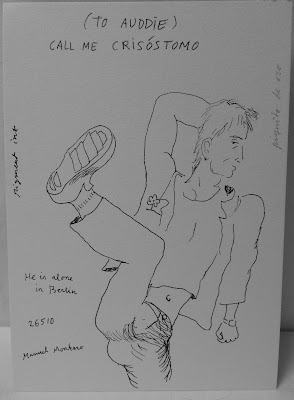 (TO AUDDIE)
CALL ME CRISÓSTOMO
pigment ink
poquito de eso
He is alone
in Berlin
26510
Manuel Montero